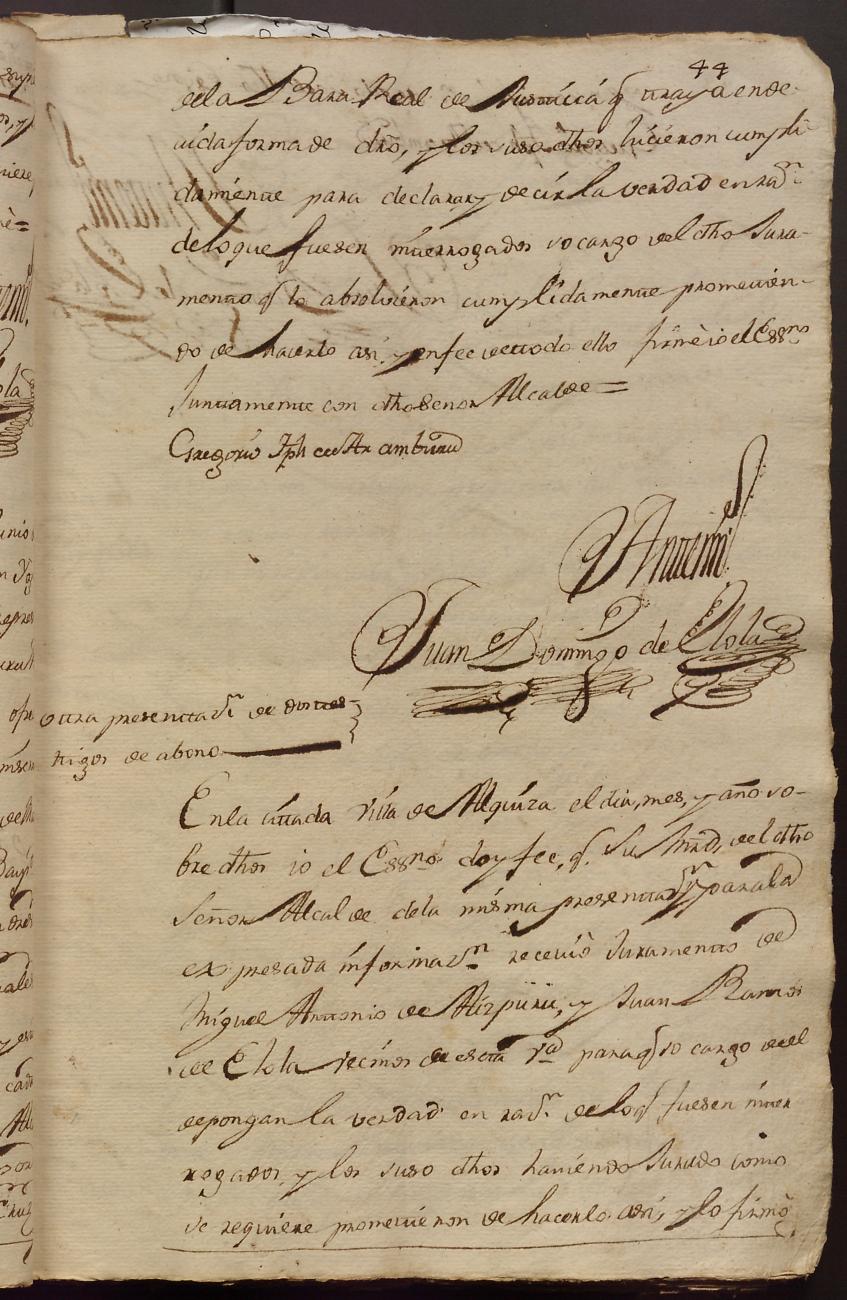 44
dela Bara Real de Justticia q̃ ttraya en de-
uida forma de dr̃o, y los suso dhos hicieron cumpli-
damente para declarar, y decir la verdad en raz.n
de loque fuesen ínterrogados so cargo del dho Jura-
mento q̃ lo absoluieron cumplidamente prometien-
do de hacerlo asi, y en fee de ttodo ello firmè io el Ess.no
Junttamente con dho Senor Alcalde =
Gregorio Jph de Aramburu
Antemi
Juan Domingo de Elola
Ottra presenttaz.n de dos ttes-
ttigos de abono
En la cittada Villa de Alquiza el dia, mes, y año so-
bre dhos io el Ess.no doy fee, q̃ Su Mrd, del dho
Señor Alcalde dela misma presenttaz.n y para la
expresada ínformaz.n receuiò Juramentto de
Miguel Anttonio de Aizpuru, y Juan Ramos
de Elola vecinos de estta V.a para q̃ so cargo de el
depongan la verdad en raz.n de loq̃ fuesen ínter
rogados, y los suso dhos hauiendo Jurado como
se requiere prometieron de hacerlo asi, y lo firmò